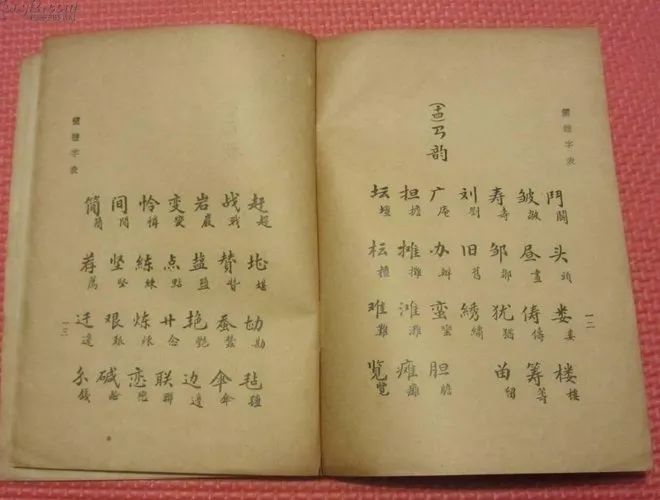 簡體字表
鬥鬪 头頭 娄婁 楼樓
皱皺 昼晝 俦儔 筹籌
寿壽 邹鄒 犹猶 畄留
刘劉 旧舊 綉繡
(十四)ㄢ韵
广庵 办辦 蛮蠻 胆膽
担擔 摊攤 滩灘 瘫癱
坛壇 枟檀 难難 览覽
一二
赶趕 毡氈
战戰 賛贊 蚕蠶 伞傘
岩巖 盐鹽 艳艷 边邊
变變 点點 廿念 联聯
怜憐 练練 炼煉 恋戀
间間 坚堅 艰艱 碱鹼
简簡 荐薦 迁遷 錢
簡體字表
一三